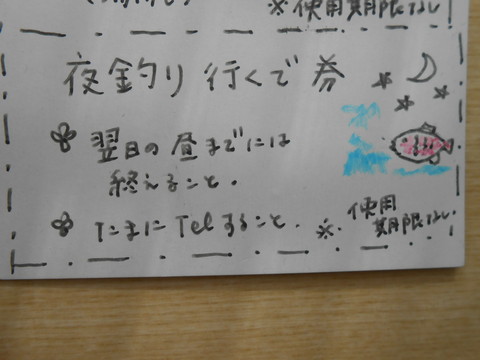 ※使用期限なし!
夜釣り 行くで 券
翌日の昼までには
終えること.
たまにTelすること.
※使用
期限なし.